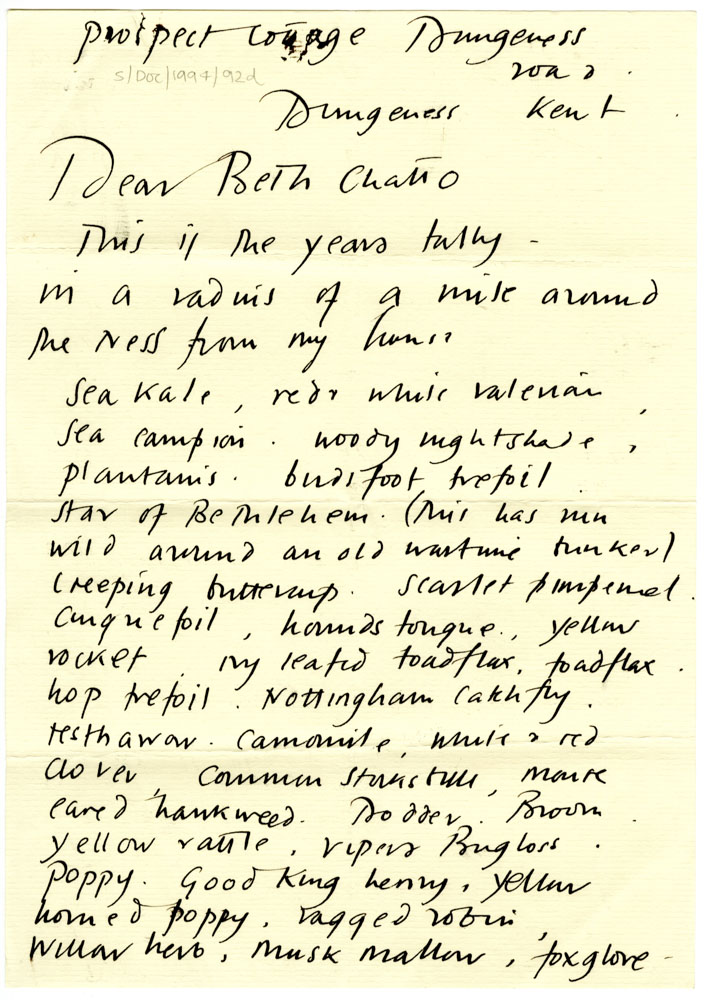 Prospect Cottage Dungeness
road.
S/Doc/1994/92d
Dungeness Kent
Dear Beth Chatto
This is the years tally -
in a radius of a mile around
the Ness from my house
Sea Kale, red & white valerian,
Sea campion. woody nightshade,
plantanis. birdsfoot trefoil
Star of Bethlehem. (This has run
wild around an old wartime bunker)
Creeping buttercup. Scarlet pimpernel.
Cinquefoil, hounds tongue., yellow
rocket. ivy leafed toadflax, toadflax.
hop trefoil. Nottingham Catchfly.
restharrow. Camomile, white & red
Clover, Common Storksbill, mouse
eared hawkweed. Dodder. Broom.
yellow rattle, vipers Bugloss.
Poppy. Good King henry, yellow
horned poppy, ragged robin,
Willow herb, Musk Mallow, foxglove -